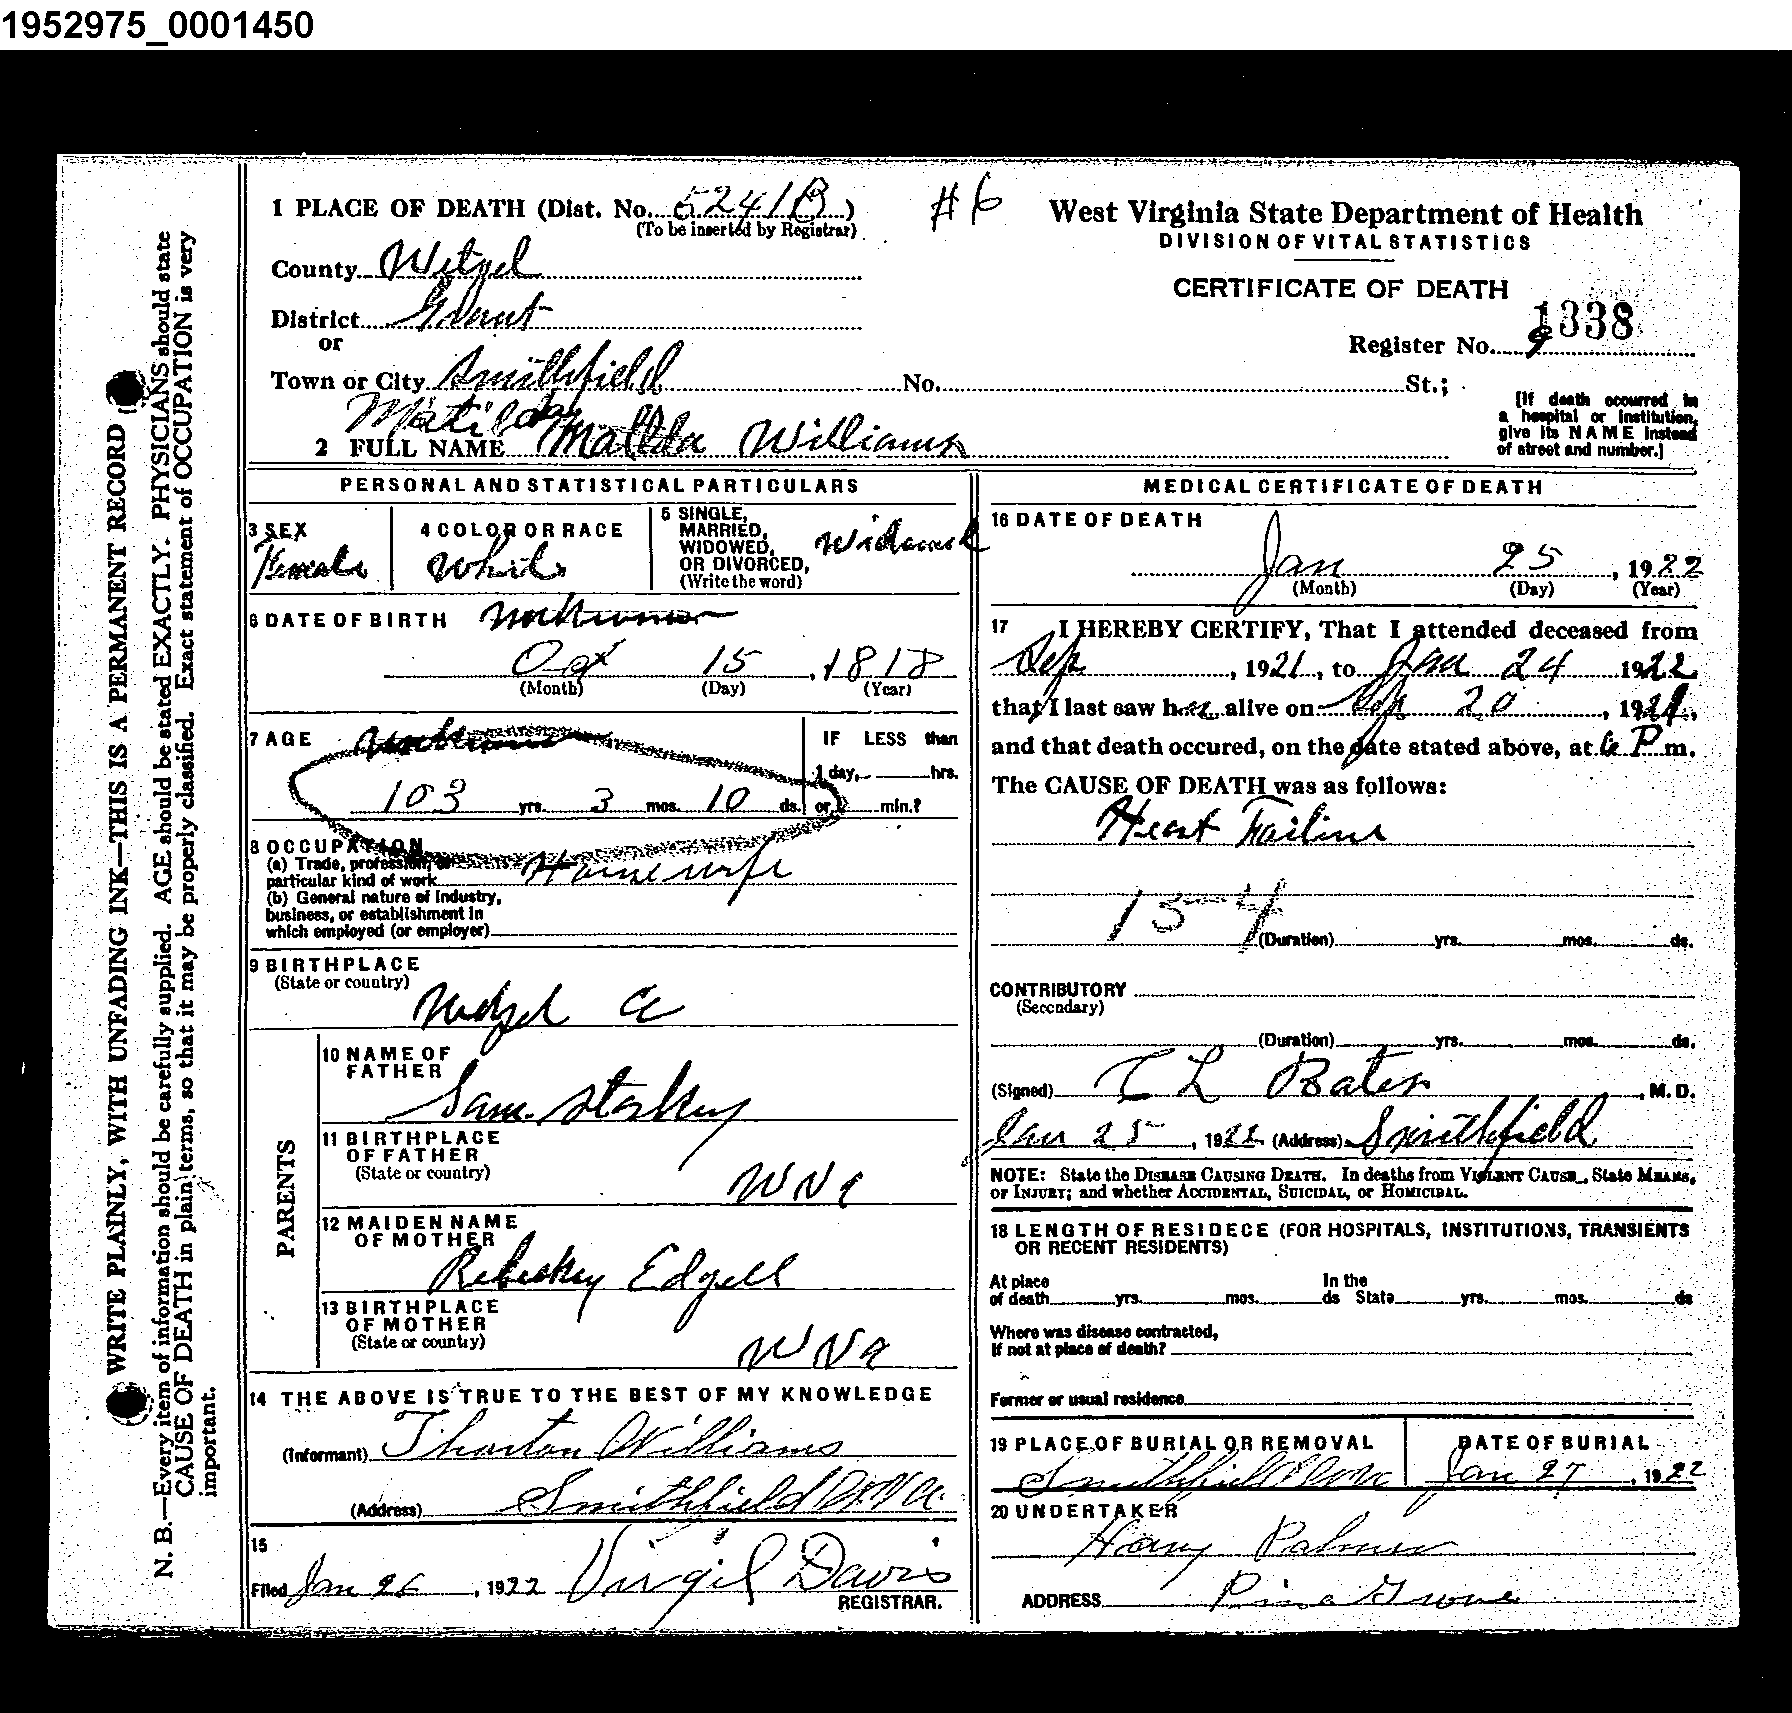 1952975_0001450
WRITE PLAINLY, WITH UNFADING INK—THIS IS A PERMANENT RECORD
N. B.—Every item of information should be carefully supplied. AGE should be stated EXACTLY. PHYSICIANS should state
CAUSE OF DEATH in plain terms, so that it may be properly classified. Exact statement of OCCUPATION is very
important.
1 PLACE OF DEATH (Dist. No. 5241B)
(To be inserted by Registrar)
#6
County Wetzel
District Grant
or
Town or City Smithfield No. St.;
Matilda
2 FULL NAME Matilda Williams
West Virginia State Department of Health
DIVISION OF VITAL STATISTICS
CERTIFICATE OF DEATH
1338
Register No. 9
[If death occurred in
a hospital or institution,
give its NAME instead
of street and number.]
PERSONAL AND STATISTICAL PARTICULARS
3 SEX
Female
4 COLOR OR RACE
White
5 SINGLE,
MARRIED,
WIDOWED,
OR DIVORCED,
(Write the word)
6 DATE OF BIRTH
Oct 15, 1818
(Month) (Day) (Year)
7 AGE
IF LESS than
1 day, hrs.
103 yrs. 3 mos. 10 ds. or min.?
8 OCCUPATION
(a) Trade, profession, or
particular kind of work Housewife
(b) General nature of industry,
business, or establishment in
which employed (or employer)
9 BIRTHPLACE
(State or country)
Wetzel Co
PARENTS
10 NAME OF
FATHER
Sam Starkey
11 BIRTHPLACE
OF FATHER
(State or country)
W Va
12 MAIDEN NAME
OF MOTHER
Rebeckey Edgell
13 BIRTHPLACE
OF MOTHER
(State or country)
W Va
14 THE ABOVE IS TRUE TO THE BEST OF MY KNOWLEDGE
(Informant) Thorton Williams
(Address) Smithfield W.Va.
15
Filed Jan 26, 1922 Virgil Davis
REGISTRAR.
MEDICAL CERTIFICATE OF DEATH
16 DATE OF DEATH
Jan 25, 1922
(Month) (Day) (Year)
17 I HEREBY CERTIFY, That I attended deceased from
Sep, 1921, to Jan 24 1922
that I last saw her alive on Sep 20, 1921,
and that death occured, on the date stated above, at 6 P m.
The CAUSE OF DEATH was as follows:
Heart Failure
154
(Duration) yrs. mos. ds.
CONTRIBUTORY
(Secondary)
(Duration) yrs. mos. ds.
(Signed) T L Bates, M. D.
Jan 25, 1922 (Address) Smithfield
NOTE: State the DISEASE CAUSING DEATH. In deaths from VIOLENT CAUSE_, State MEANS,
OF INJURY; and whether ACCIDENTAL, SUICIDAL, or HOMICIDAL.
18 LENGTH OF RESIDECE (FOR HOSPITALS, INSTITUTIONS, TRANSIENTS
OR RECENT RESIDENTS)
At place In the
of death yrs. mos. ds State yrs. mos. ds
Where was disease contracted,
If not at place of death?
Former or usual residence
19 PLACE OF BURIAL OR REMOVAL
Smithfield
DATE OF BURIAL
Jan 27, 1922
20 UNDERTAKER
Harry Palmer
ADDRESS Pine Grove